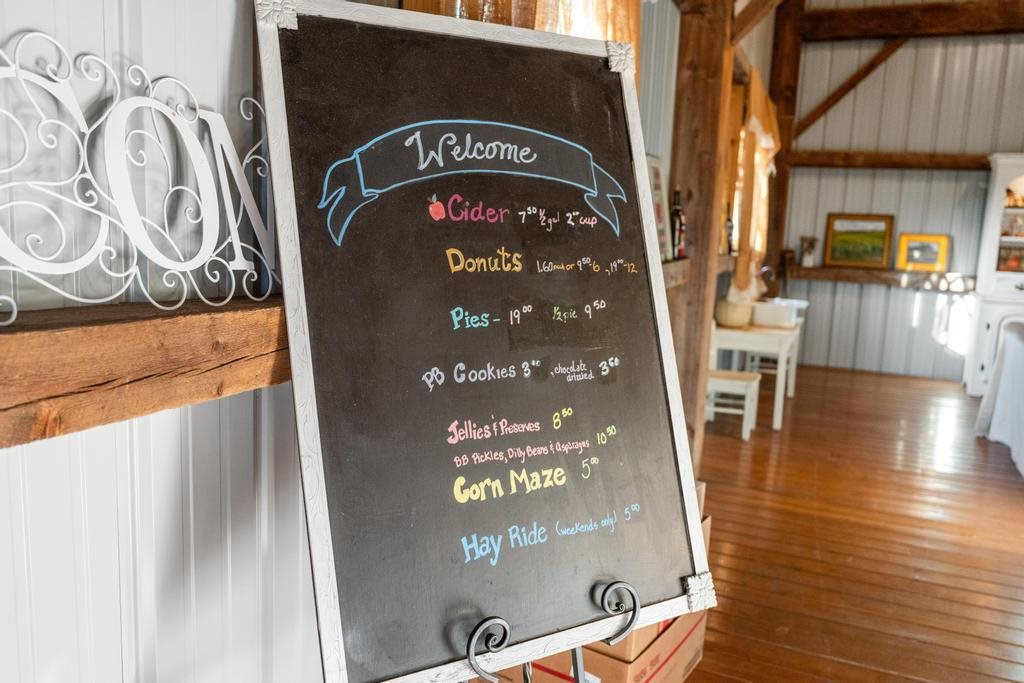 COM
Welcome
Cider 7⁵⁰ ½gal 2⁰⁰ cup
Donuts 1.60 each or 9⁵⁰-6, 19⁰⁰-12
Pies - 19⁰⁰ ½ pie 9⁵⁰
PB Cookies 3⁰⁰, chocolate drizzled 3⁵⁰
Jellies & Preserves 8⁵⁰
BB Pickles, Dilly Beans & asparagus 10⁵⁰
Corn Maze 5⁰⁰
Hay Ride (weekends only) 5⁰⁰